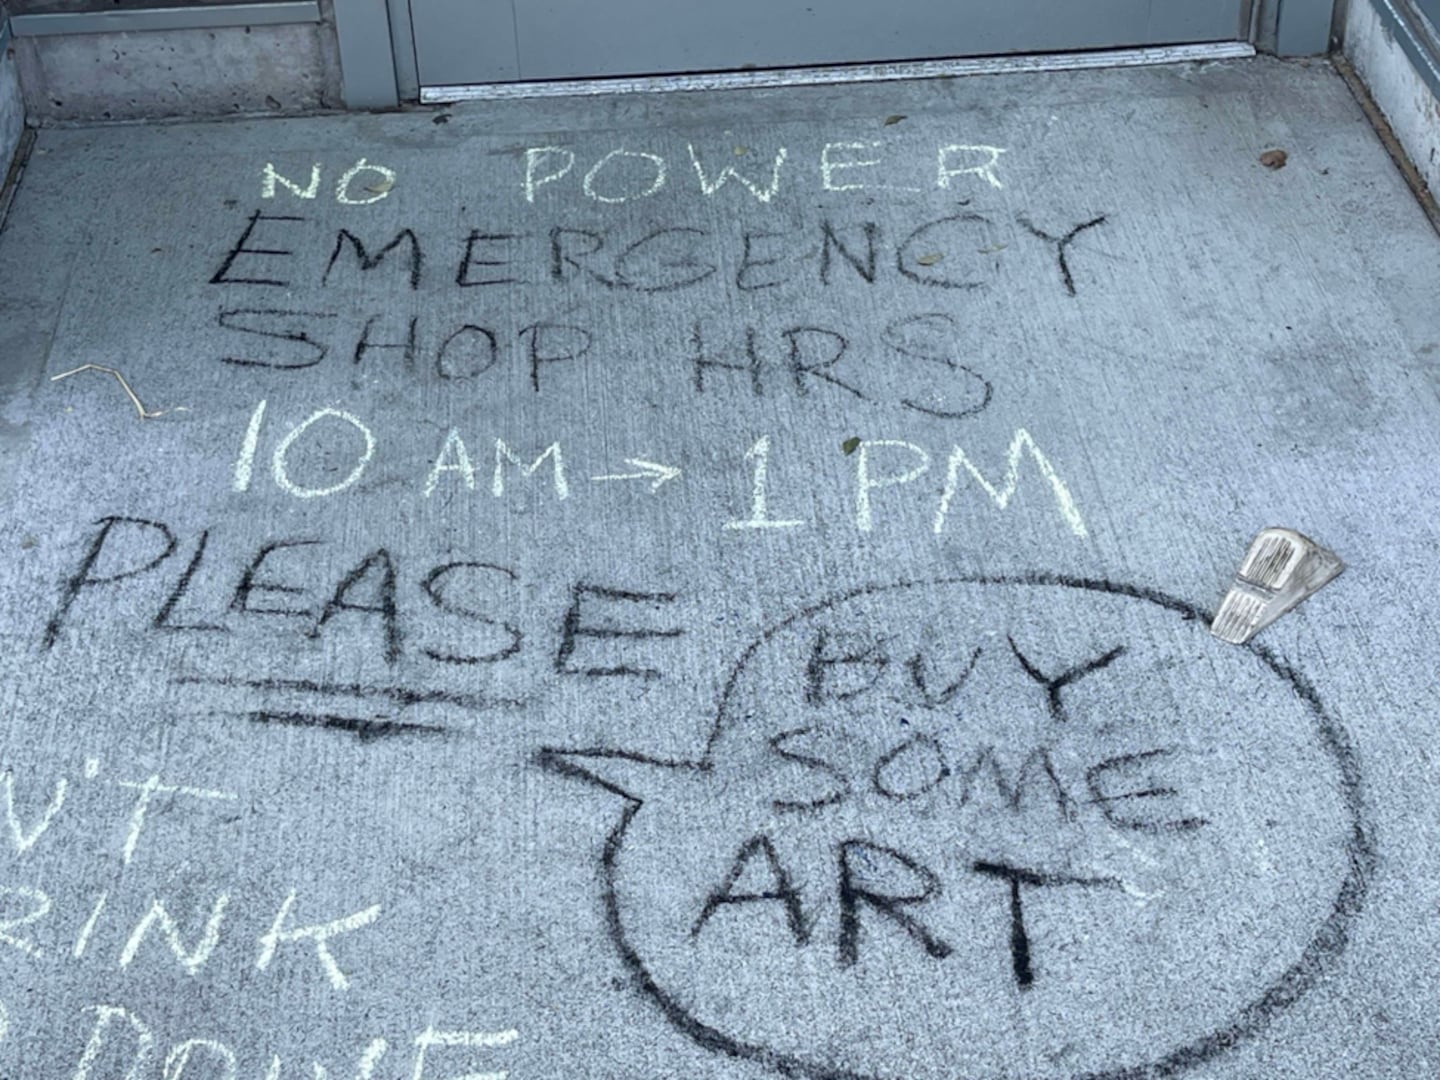 NO POWER
EMERGENCY
SHOP HRS
10 AM → 1 PM
PLEASE
BUY
SOME
ART
N'T
RINK